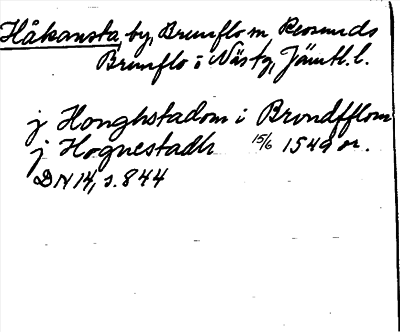 Håkansta, by, Brunflo sn, Revsunds
Brunflo i Näs tg, Jämtl. l.
j Honghstadom i Brondfflom
j Hognestadh 15/6 1549 or.
DN 14, s. 844